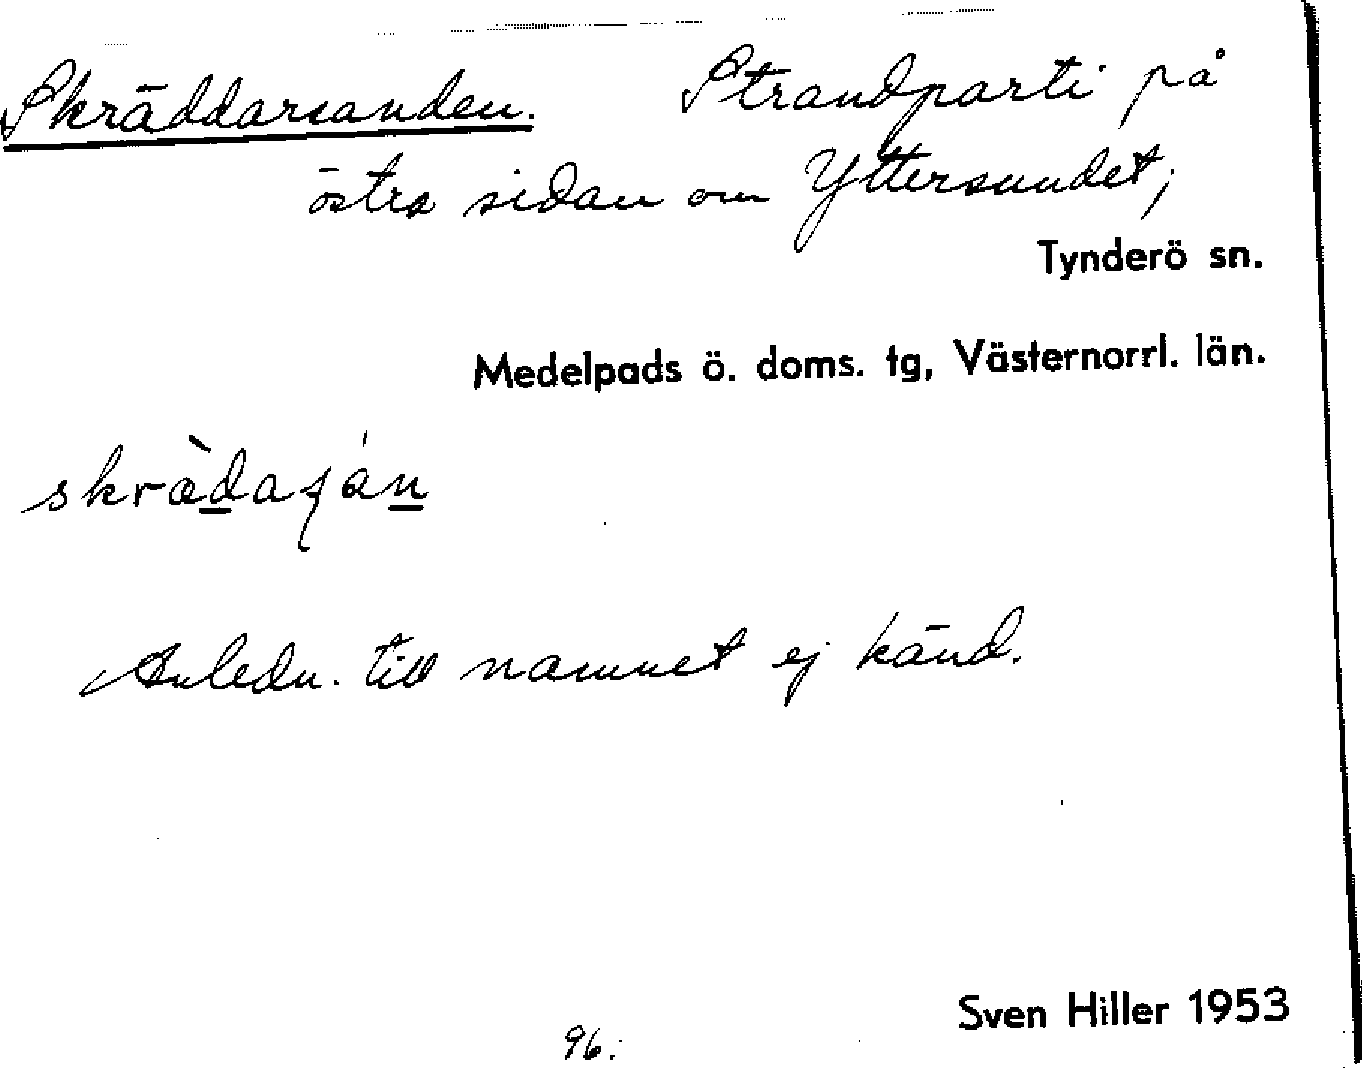 Skräddarsanden. Strandparti på
östra sidan om Yttersundet;
Tynderö sn.
Medelpads ö. doms. tg, Västernorrl. län.
Anledn. till namnet ej känd.
Sven Hiller 1953
96.